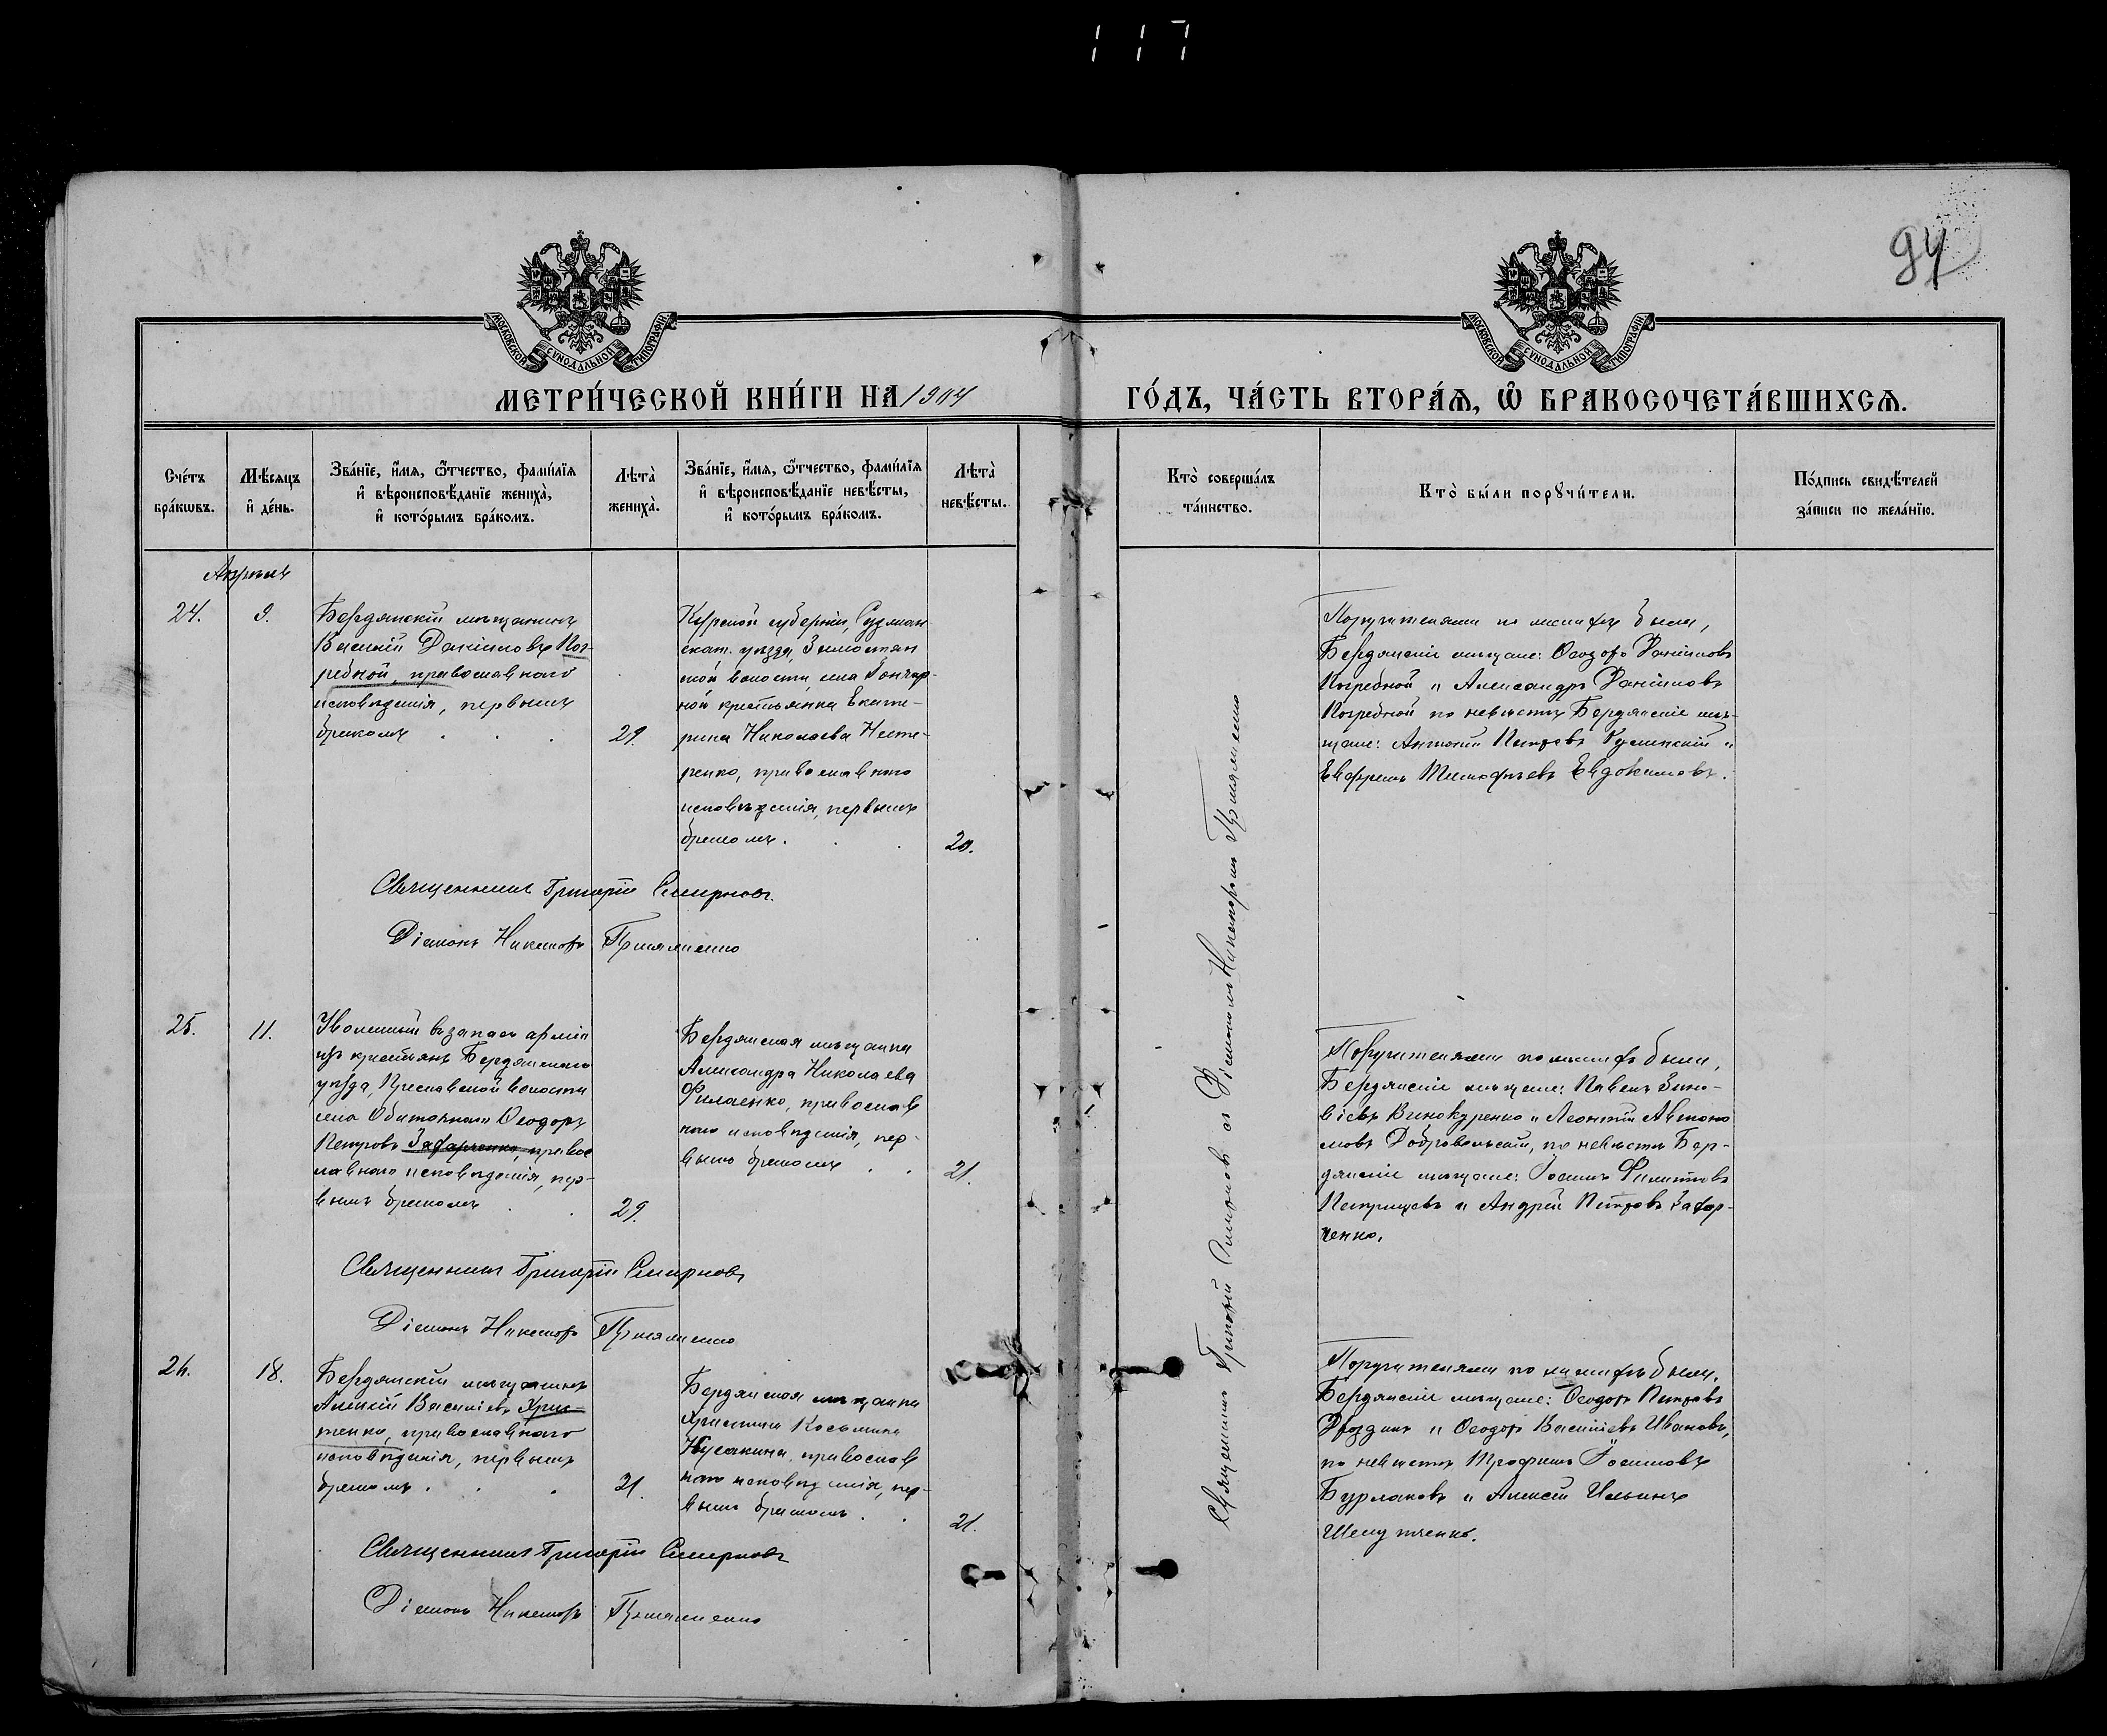 117
94
МОСКОВСКОЙ СѴНОДАЛЬНОЙ ТИПОГРАФІИ
МОСКОВСКОЙ СѴНОДАЛЬНОЙ ТИПОГРАФІИ
МЕТРИ́ЧЕСКОЙ КНИ́ГИ НА 1904
ГО́ДЪ, ЧА́СТЬ ВТОРА́Ѧ, Ѽ БРАКОСОЧЕТА́ВШИХСѦ.
Сче́тъ бра́кѡвъ.
Мѣ́сѧцъ и҆ де́нь.
Зва́нїе, и҆́мѧ, ѻ҆́тчество, фами́лїѧ
и҆ вѣроисповѣ́данїе жениха̀,
и҆ кото́рымъ бра́комъ.
Лѣта̀ жениха̀.
Зва́нїе, и҆́мѧ, ѻ҆́тчество, фами́лїѧ
и҆ вѣроисповѣ́данїе невѣ́сты,
и҆ кото́рымъ бра́комъ.
Лѣта̀ невѣ́сты.
Кто̀ соверша́лъ та́инство.
Кто̀ бы́ли порꙋчи́тели.
По́дпись свидѣ́телей
за́писи по жела́нїю.
Апрѣль
24.
9.
Бердянскій мѣщанинъ
Василій Даніиловъ Пог-
ребной, православнаго
исповѣданія, первымъ
бракомъ
29.
Курской губерніи, Суджан
скаго уѣзда,
той волости, села Гончар-
ной крестьянка Екате-
рина Николаева Несте-
ренко, православнаго
исповѣданія, первымъ
бракомъ.
20.
Поручителями по женихѣ были,
Бердянскіе мѣщане: Ѳеодоръ Даніиловъ
Погребной и Александръ Даніиловъ
Погребной по невѣстѣ Бердянскіе мѣ-
щане: Антоній Петровъ и
Евдокимовъ.
Священникъ Григорій Смирновъ.
Діаконъ Никаноръ
25.
11.
Уволенный въ запасъ арміи
изъ крестьянъ Бердянскаго
уѣзда, Преславской волости
села Обиточнаго Ѳеодоръ
Петровъ Захарченко, правос
лавнаго исповѣданія, пер-
вымъ бракомъ
29.
Бердянская мѣщанка
Александра Николаева
Филаенко, православ
наго исповѣданія, пер-
вымъ бракомъ
21.
Поручителями по женихѣ были,
Бердянскіе мѣщане: Павелъ Зино-
віевъ Винокуренко и Леонтій Автоно
мовъ Добровольскій, по невѣстѣ Бер-
дянскіе мѣщане: Іоаннъ Филипповъ
Петрищевъ и Андрей Петровъ Захар-
ченко.
Священникъ Григорій Смирновъ
Діаконъ Никаноръ
26.
18.
Бердянскій мѣщанинъ
Алексій Василіевъ Крис-
тенко, православнаго
исповѣданія, первымъ
бракомъ
21.
Бердянская мѣщанка
Христина Косьмина
православ
наго исповѣданія, пер-
вымъ бракомъ.
21.
Поручителями по женихѣ были,
Бердянскіе мѣщане: Ѳеодоръ Петровъ
Дроздикъ и Ѳеодоръ Василіевъ Ивановъ,
по невѣстѣ Трофимъ Іоанновъ
Бурлаковъ и Алексій Ильинъ
Священникъ Григорій Смирновъ
Діаконъ Никаноръ
Священникъ Григорій Смирновъ съ Діакономъ Никаноромъ